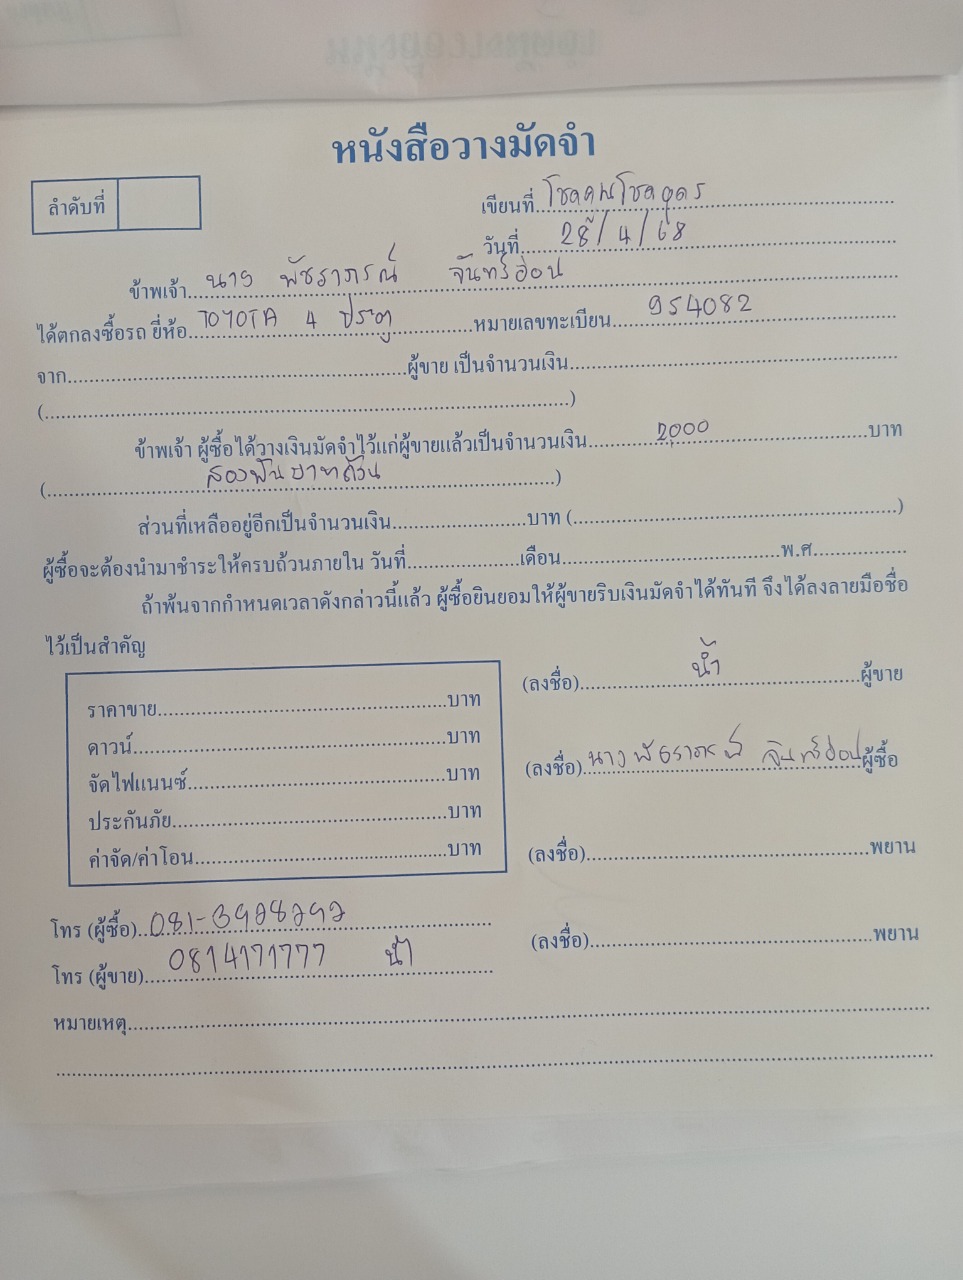 หนังสือวางมัดจำ
ลำดับที่
เขียนที่ โชคคูณโชคอุดร
วันที่ 28/4/68
ข้าพเจ้า นาง พัชราภรณ์ จันทร์อ่อน
ได้ตกลงซื้อรถ ยี่ห้อ TOYOTA 4 ประตู หมายเลขทะเบียน 954082
จาก ผู้ขาย เป็นจำนวนเงิน
( )
ข้าพเจ้า ผู้ซื้อได้วางเงินมัดจำไว้แก่ผู้ขายแล้วเป็นจำนวนเงิน 2,000 บาท
( สองพันบาทถ้วน )
ส่วนที่เหลืออยู่อีกเป็นจำนวนเงิน บาท ( )
ผู้ซื้อจะต้องนำมาชำระให้ครบถ้วนภายใน วันที่ เดือน พ.ศ.
ถ้าพ้นจากกำหนดเวลาดังกล่าวนี้แล้ว ผู้ซื้อยินยอมให้ผู้ขายริบเงินมัดจำได้ทันที จึงได้ลงลายมือชื่อ
ไว้เป็นสำคัญ
(ลงชื่อ) น้ำ ผู้ขาย
ราคาขาย บาท
ดาวน์ บาท
(ลงชื่อ) นาง พัชราภรณ์ จันทร์อ่อน ผู้ซื้อ
จัดไฟแนนซ์ บาท
ประกันภัย บาท
ค่าจัด/ค่าโอน บาท
(ลงชื่อ) พยาน
โทร (ผู้ซื้อ) 081-
(ลงชื่อ) พยาน
โทร (ผู้ขาย) 0814171777 น้ำ
หมายเหตุ